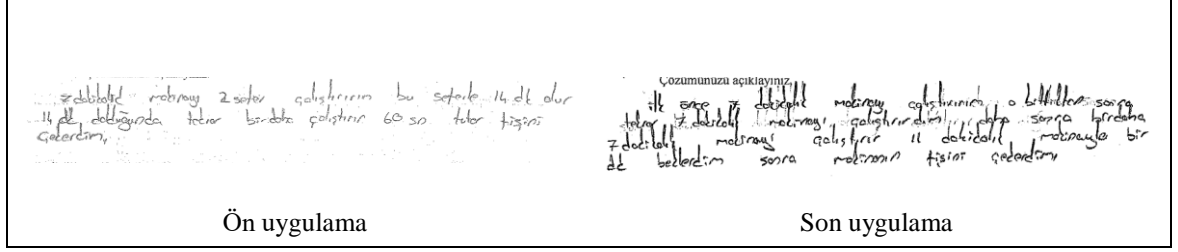 7 dakikalık makinayı 2 sefer çalıştırırım bu seferle 14 dk olur
14 dk dolduğunda tekrar birdaha çalıştırır 60 sn tutar fişini
çekerdim,
Ön uygulama
Çözümünüzü açıklayınız.
ilk önce 7 dakikalık makinayı çalıştırırım, o bittikten sonra
tekrar 7 dakikalık makinayı çalıştırırdım, daha sonra birdaha
7 dakikalık makinayı çalıştırır 11 dakikalık makinayla bir
dk beklerdim sonra makinanın fişini çekerdim,
Son uygulama